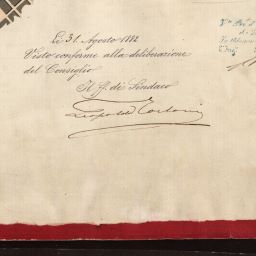 Lì 31 Agosto 1882
Visto conforme alla deliberazione
del Consiglio
Il ff. di Sindaco
Leopoldo Torlonia